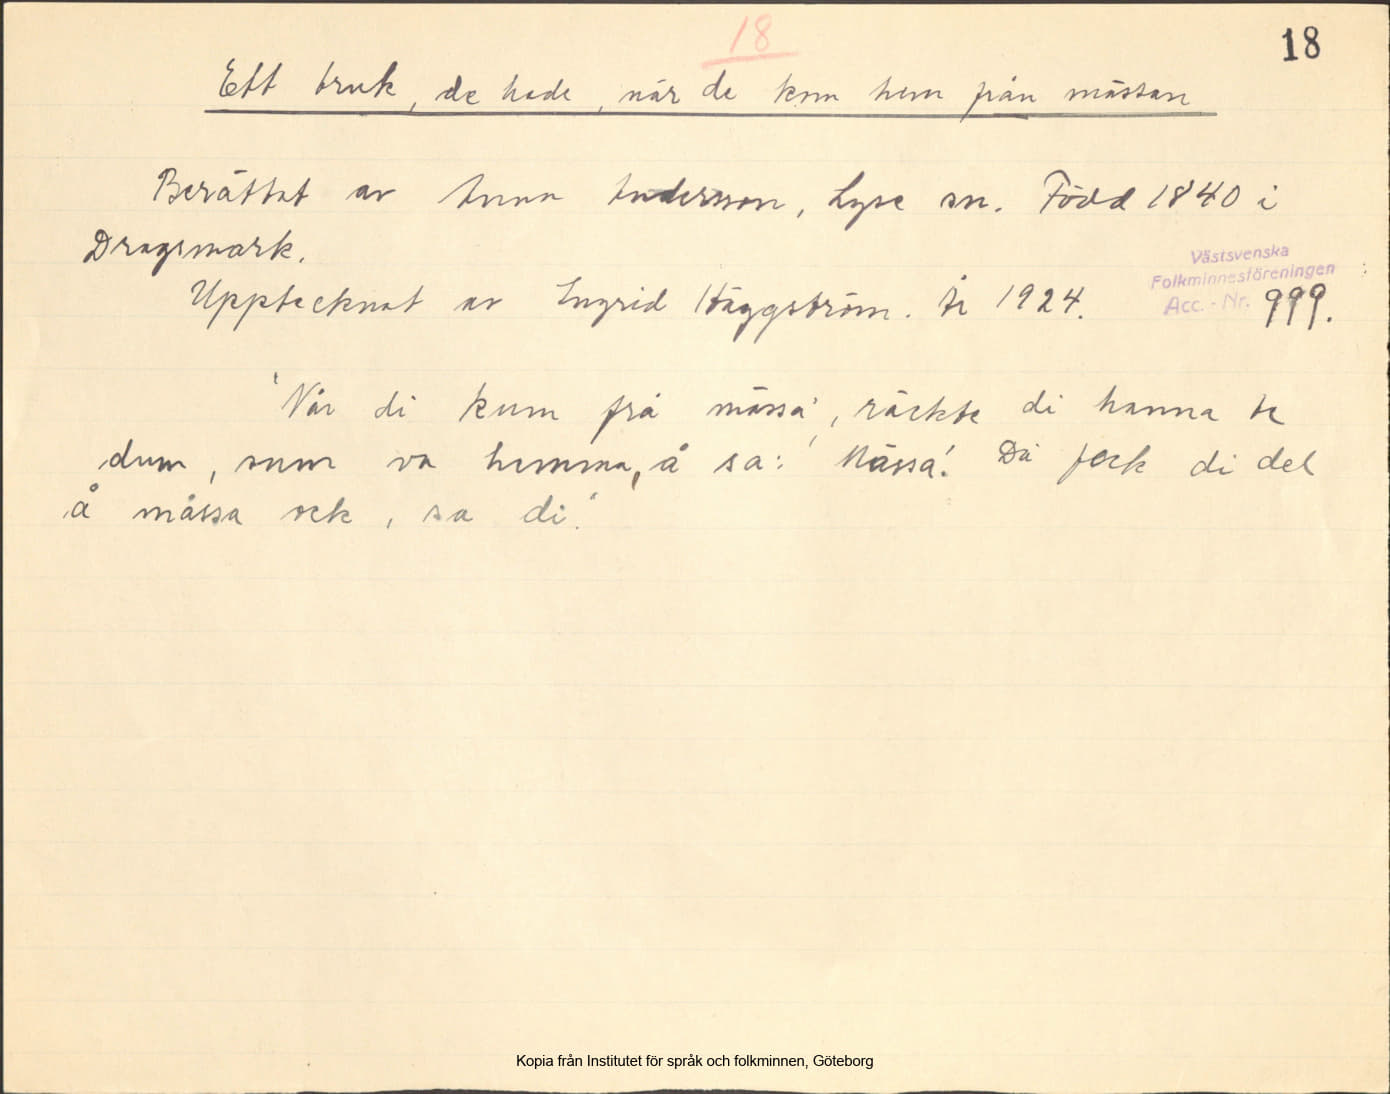 18
18
Ett bruk, de hade, när de kom hem från mässan
Berättat av Anna Andersson, Lyse sn. Född 1840 i
Dragsmark.
Västsvenska
Folkminnesföreningen
Acc. - Nr. 999.
Upptecknat av Ingrid Häggström. År 1924.
"När di kum frå mässa, räckte di hanna te
dum, sum va hemma, å sa: 'Mässa'! Då feck di del
å mässa ock, sa di."
Kopia från Institutet för språk och folkminnen, Göteborg